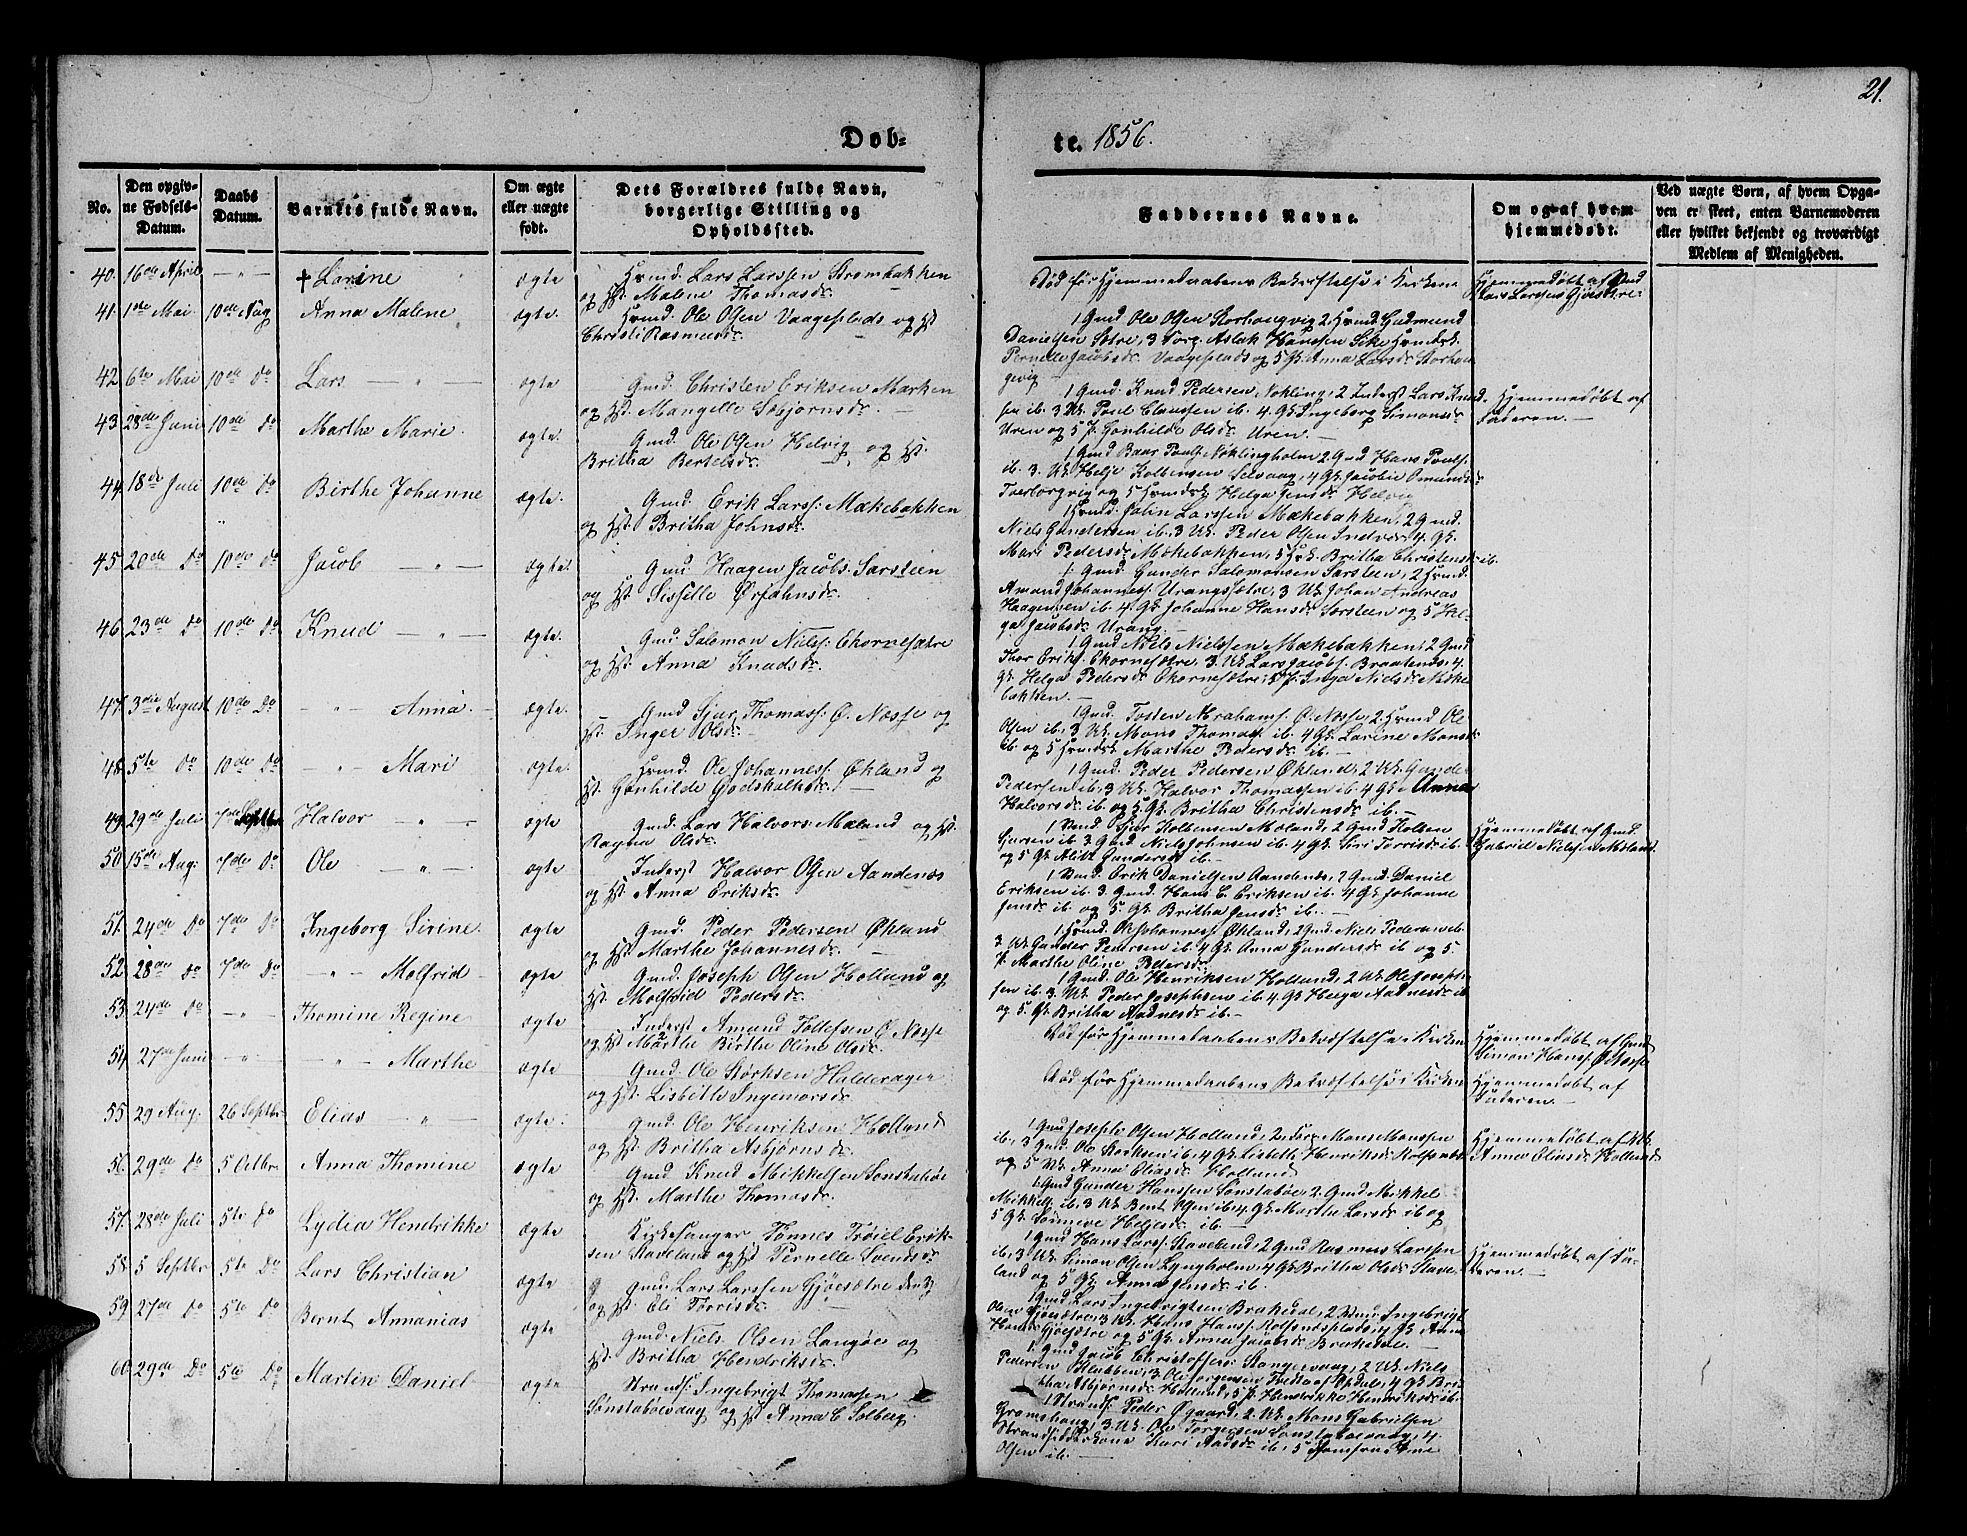 21.
Döb=
te. 1856.
No.
Den opgiv-
ne Fødsels-
Datum.
Daabs
Datum.
Barnets fulde Navn.
Om ægte
eller uægte
født.
Dets Forældres fulde Navn,
borgerlige Stilling og
Opholdssted.
Faddernes Navne.
Om og af hvem
hjemmedøbt.
Ved uægte Børn, af hvem Opga-
ven er skeet, enten Barnemoderen
eller hvilket bekjendt og troværdigt
Medlem af Menigheden.
40. 16de April — " — † Larine ægte Hrmd. Lars Larssen Strømbakken
og Hst. Malene Thomasdr.
Død før Hjemmedaabens Bekræftelse i Kirken
Hjemmedøbt af Gmd
Lars Larssen Gjøesætre
41. 1ste Mai 10de Aug Anna Malene ægte. Hrmd. Ole Olsen Vaageplads og Hst
Christi Rasmusdr.
1 Gmd Ole Olsen Storhaugvig 2 Hrmd Gudmund
Danielsen Sætre, 3
Pernelle Jacobsdr. Vaageplads og 5 Gk. Anna Larsdr Storhau
gevig —
42 6te Mai 10de Do Lars — " — ægte Gmd. Christen Eriksen Marken
og Hst.
1 Gmd. Knud Pedersen, Nøkling, 2 Inderst Lars Knud
sen ib. 3 Uk. Poul Claussen ib. 4. Gk Ingeborg Simonsdr
Uren og 5 P. Gonhilde Olsdr. Uren. —
Hjemmedøbt af
Faderen. —
43 28de Juni 10de Do Marthe Marie. ægte. Gmd. Ole Olsen Helvig og Hst.
Britha Bertelsdr.
1 Gmd Baar Pouls. Nøklingholm 2 Gmd Hans Pouls.
ib. 3. Uk Helje Kolbensen Selvaag, 4 Gk Jacobin Omundsdr
Tverborgvig og 5 Hrmdsk Helga Jensdr Helvig
44. 18de Juli 10de Do Birthe Johanne ægte. Gmd. Erik Larss: Mækebakken
og Hst. Britha Johnsdr.
1 Hrmd. John Larssen Mækebakken, 2 Gmd.
Niels Gundersen ib. 3 Uk. Peder Olsen Indvær, 4. Gk.
Mari Pedersdr Mækebakken, 5 Hrk. Britha Christensdr ib.
45. 20de Do 10de Do Jacob — " — ægte. Gmd. Haagen Jacobs. Sørsteen
og Hst. Sissille
1. Gmd. Gunder Salomonsen Sørsteen, 2 Hrmd.
Amund Johanness. Urangsætre, 3 Uk Johan Andreas
Haagensen ib. 4. Gk. Johanne Hansdr Sørsteen og 5 Hel
ga Jacobsdr. Urang. —
46. 23de Do 10de Do Knud — " — ægte. Gmd. Salomon Niels: Ekornesætre
og Hst. Anna Knudsdr.
1 Gmd Niels Nielssen Mækebakken, 2 Gmd
Thor Eriks. Ekornesætre, 3. Uk Lars Jacobs. Braatene, 4.
Gk Helga Pedersdr. Ekornesætre, 5 P. Inga Nielsdr. Mæke
bakken. —
47. 3die August 10de Do — " — Anna. — ægte. Gmd Sjur Thomass: Ø. Næsse og
Hst. Inger Olsdr.
1 Gmd. Tosten Abrahams. Ø. Næsse, 2. Hrmd Ole
Olsen ib. 3 Uk. Mons Thomass ib. 4 Gk. Larine Monsdr
ib. og 5 Hrmdsk Marthe Pedersdr ib.
48. 5te Do 10de Do — " — Mari ægte. Hrmd. Ole Johanness: Økland og
Hst. Gonhilde Godskalksdr. —
1 Gmd. Peder Pedersen Økland, 2 Uk. Gunder
Pedersen ib. 3 Uk Halvor Thomassen ib. 4 Gk Anna
Halvorsdr. ib. og 5. Gk. Britha Christensdr ib. —
49. 29de Juli 7de Septbr Halvor — " — ægte Gmd. Lars Halvors. Mæland og Hst.
Ragna Olsdr.
1 Gmd. Sjur Kolbensen Mæland, 2 Gmd Kolben
Sjursen ib. 3 Gmd Niels Johnsen ib. 4 Gk. Siri Torrisdr ib.
og 5 Gk. Alis Gundersdr ib. —
Hjemmedøbt af Gmd.
Gabriel Nielssen Mæland.
50. 15de Aug: 7de Do Ole — " — ægte Inderst Halvor Olsen Aandenæs
og Hst. Anna Eriksdr.
1 Gmd. Erik Danielsen Aandenæs, 2 Gmd. Daniel
Eriksen ib. 3. Gmd. Hans C. Eriksen ib. 4 Gk Johanne
Jensdr ib. og 5. Gk Britha Jensdr ib. —
51. 24de Do 7de Do Ingeborg Sirine. ægte Gmd. Peder Pedersen Økland
og Hst. Marthe Johannesdr. —
1. Hrmd. Ole Johanness. Økland, 2 Gmd Niels Pedersen ib
3 Uk Gunder Pedersen ib. 4 Gk Anna Gundersdr. ib og 5.
P. Marthe Oline Pedersdr.
52. 28de Do 7de Do — " — Molfrid — ægte Gmd. Joseph Olsen Holland og
Hst. Molfrid Pedersdr.
1 Gmd Ole Henriksen Holland, 2 Uk. Ole Joseph-
sen ib. 3. Uk Peder Josephsen ib. 4. Gk Helga Aadnesdr ib
og 5. Gk Britha Aadnesdr ib. —
53. 24de Do — " — Thomine Regine ægte Inderst Amund Tollefsen Ø. Næsse
og Hst Marthe Birthe Oline Olsdr.
Død før Hjemmedaabens Bekræftelse i Kirken
Hjemmedøbt af Gmd
Simon Hanss. Ø. Næsse
54. 27de Juni — " — — " — Marthe ægte Gmd. Ole Størksen Halderager
og Hst. Lisbeth Ingemarsdr.
Død før Hjemmedaabens Bekræftelse i Kirken
Hjemmedøbt af
Faderen. —
55. 29 Aug. 26 Septbr Elias — " — ægte. Gmd. Ole Henriksen Holland
og Hst. Britha Asbjørnsdr.
1 Gmd Joseph Olsen Holland, 2 Mons Monssen
ib. 3 Gmd. Ole Størksen ib. 4 Gk Lisbeth Henriksdr
og 5 Uk Anna Eliasdr Holland
Hjemmedøbt af Uk
Anna Eliasdr Holland
56. 29de Do 5 Octbr Anna Thomine ægte Gmd Knud Mikkelsen Sønstabøe
og Hst. Marthe Thomasdr.
1. Gmd Gunder Hanssen Sønstabøe, 2. Gmd Mikkel
Mikkels. ib. 3 Uk Bent Olsen ib 4. Gk Marthe Larsdr ib og
5 Gk Sønneve Heljesdr ib. —
57. 28de Juli 5te Do Lydia Hendrikke ægte Kirkesanger Tønnes Trøiel Erik-
sen Staveland og Hst Pernelle Svendsdr.
1 Gmd Hans Larss: Staveland, 2 Gmd Rasmus Larssen
ib, 3 Uk Simon Olsen Lyngholm, 4 Gk Britha Olsdr Stave-
land og 5 Gk. Anna Jensdr ib.
Hjemmedøbt af Fa-
deren. —
58. 5 Septbr 5te Do Lars Christian ægte Gmd. Lars Larssen Gjøesætre den 3
og Hst. Eli Torrisdr.
1 Gmd Lars Ingebrigtsen Brakedal, 2 Gmd. Ingebrigt
Olsen Gjøesætre, 3 Uk Hans Hanss. Rolfsnesplads, 4 Gk Anna
Hansdr Gjøesætre og 5 Gk. Anna Jacobsdr Brakedal. —
59. 27de Do 5te Do Bernt Annanias ægte Gmd. Niels Olsen Langøe og
Hst. Britha Hendriksdr.
1. Gmd Jacob Christoffers. Stangervaag, 2 Uk Niels
Pedersen Klubben, 3 Ole Jørgensen af Opdal, 4 Gk Bri
tha Asbjørnsdr Holland, 5 P. Hendrikke Henriksdr ib.
60. 29de Do 5te Do Martin Daniel ægte Strands. Ingebrigt Thomassen
Sønstabøevaag og Hst Anna C Solberg.
1 Strands. Peder Øgaard, 2. Uk. Mons Gabrielsen
Grønshaug, 3 Uk. Ole Torgersen Sønstabøevaag, 4.
Strandsidderkone Kari Aadsdr ib. 5 Jomfru Ane
Olsen ib. —